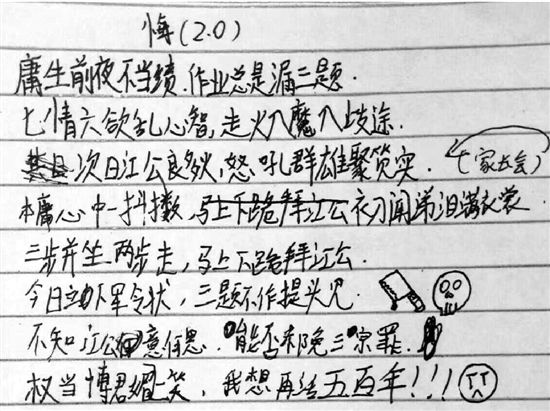 悔(2.0)
庸生前夜不当绩.作业总是漏三题.
七情六欲乱心智,走火入魔入歧途.
次日江公良多火,怒吼群雄聚筼实.(家长会)
本庸心中一抖擞,马上下跪拜江公 初闻涕泪满衣裳
三步并坐两步走,马上下跪拜江公.
今日立下军令状,三题不作提头见
不知江公意何思.能否都免三宗罪.
权当博君婿一笑,我想再活五百年!!!